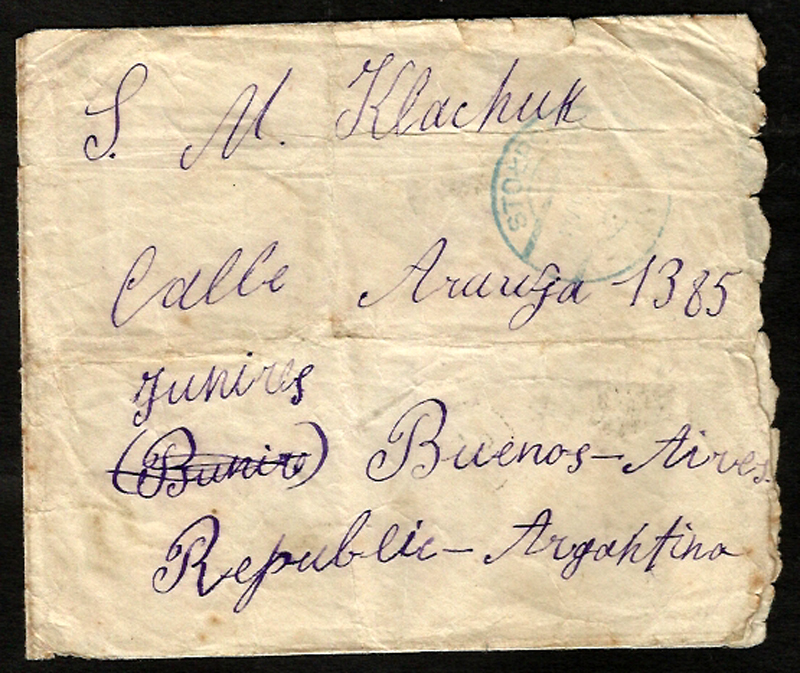 S. M. Klachuk
STOŁP
Calle Arauza 1385
Junires
(Bunire) Buenos-Aires.
Republic-Argahtina